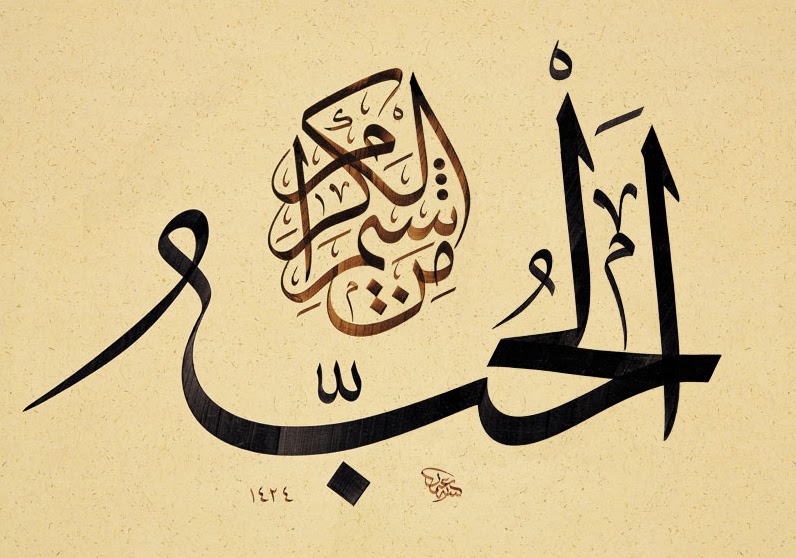 الْحُبّ
مِن شيم الكرام
١٤٢٤